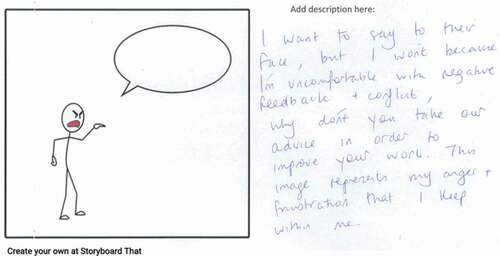 Add description here:
I want to say to their
face, but I won't because
I'm uncomfortable with negative
feedback + conflict,
why don't you take our
advice in order to
improve your work. This
image represents my anger +
frustration that I keep
within me.
Create your own at Storyboard That